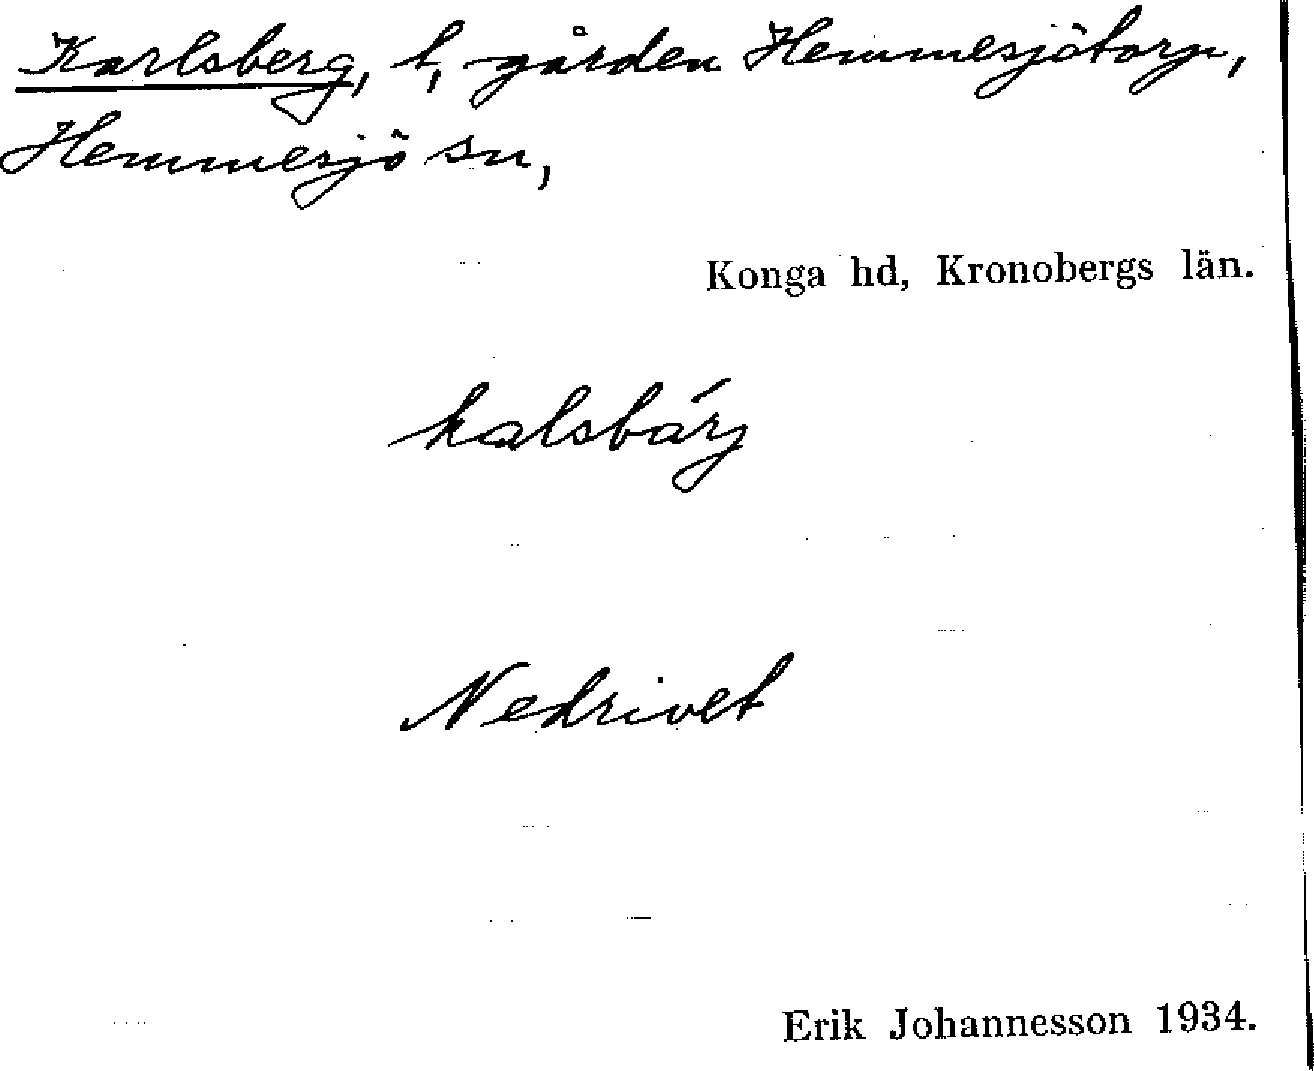 Karlsberg, t, gården Hemmesjötorp,
Hemmesjö sn,
Konga hd, Kronobergs län.
kalsbárj
Nedrivet
Erik Johannesson 1934.